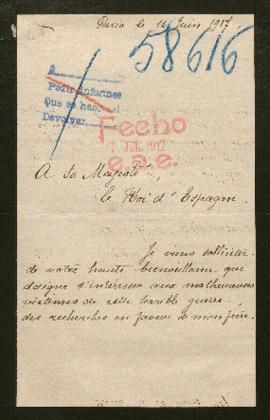 Paris le 10 Juin 1917.
58616
A
Pedir informes
Que se haga
Devolver
Fecho
JUL. 1917
A Sa Majesté,
le Roi d'Espagne.
Je viens solliciter
de votre haute bienveillance que
daigne s'interesser aux malheureuses
victimes de cette terrible guerre
des recherches en faveur de mon frère.